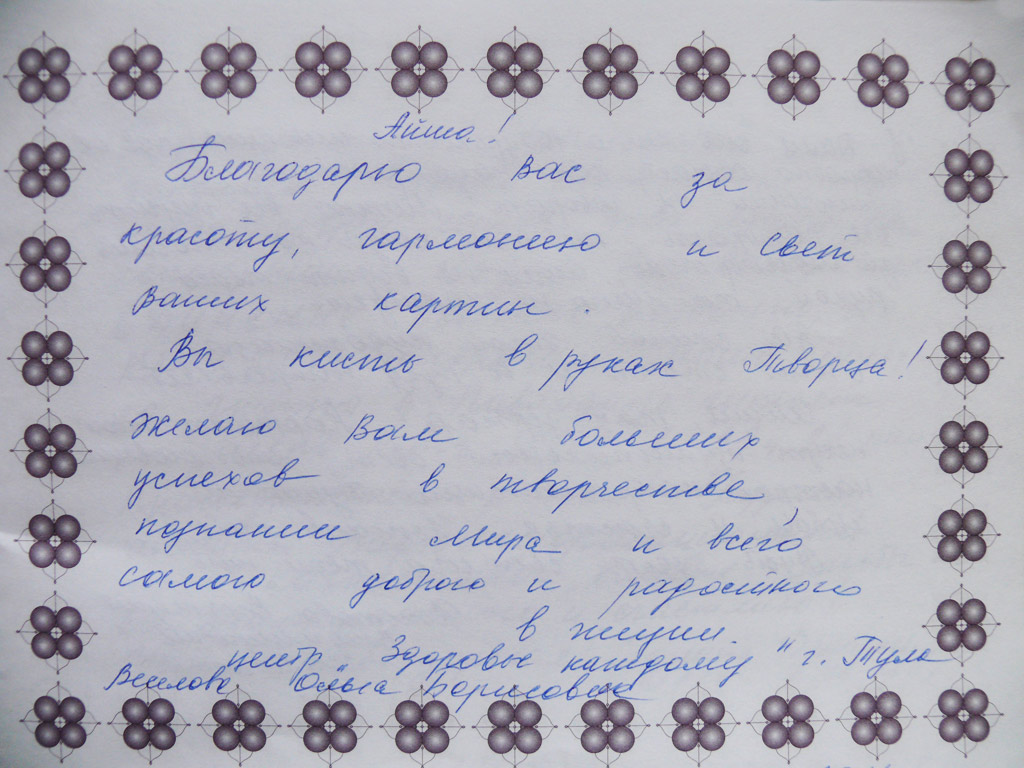 Айша!
Благодарю Вас за
красоту, гармонию и Свет
Ваших картин.
Вы кисть в руках Творца!
Желаю Вам больших
успехов в творчестве,
познании Мира и всего
самого доброго и радостного
в жизни.
центр "Здоровье каждому" г. Тула
Ольга Борисовна